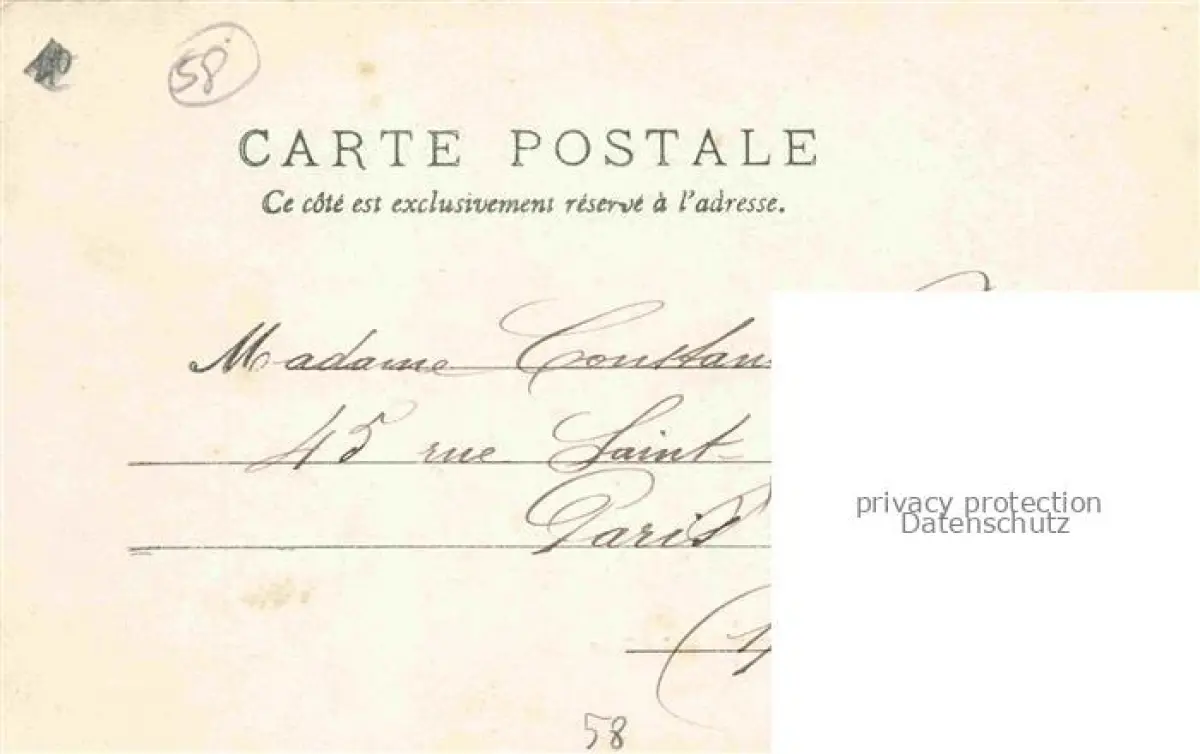 58
CARTE POSTALE
Ce côté est exclusivement réservé à l'adresse.
Madame Constan
45 rue Saint-
Paris
privacy protection
Datenschutz
58